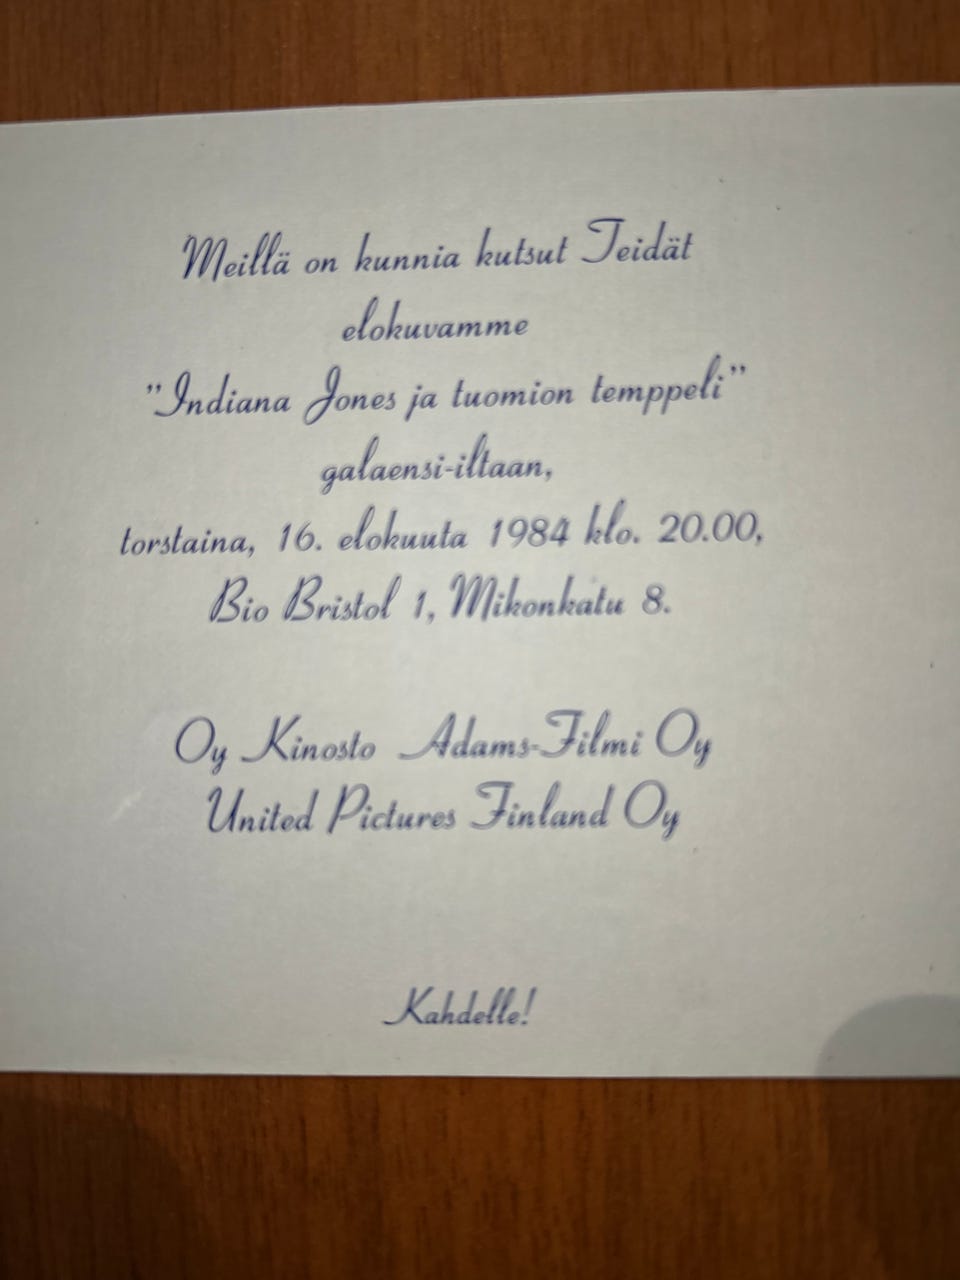 Meillä on kunnia kutsut Teidät
elokuvamme
”Indiana Jones ja tuomion temppeli”
galaensi-iltaan,
torstaina, 16. elokuuta 1984 klo. 20.00,
Bio Bristol 1, Mikonkatu 8.
Oy Kinosto Adams-Filmi Oy
United Pictures Finland Oy
Kahdelle!